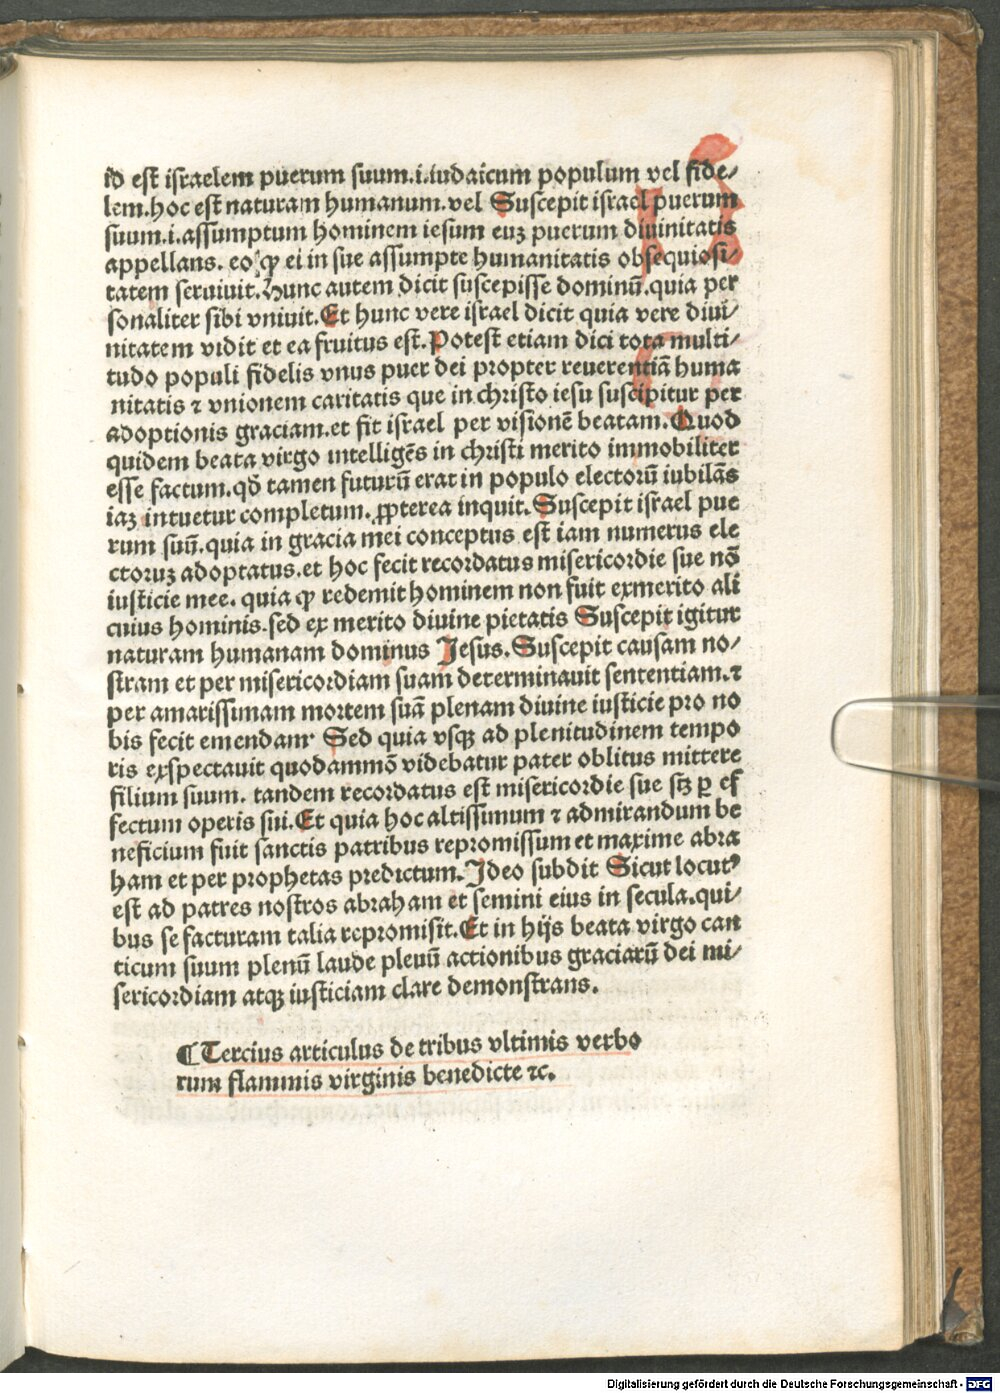 id est israelem puerum suum.i.iudaicum populum vel fide/
lem.hoc est naturam humanum.vel Suscepit israel puerum
suum.i.assumptum hominem iesum euz puerum diuinitatis
appellans. eo ꝙ ei in sue assumpte humanitatis obsequiosi/
tatem seruiuit. Hunc autem dicit suscepisse dominū.quia per
sonaliter sibi vniuit. Et hunc vere israel dicit quia vere diui/
nitatem vidit et ea fruitus est. Potest etiam dici tota multi/
tudo populi fidelis vnus puer dei propter reuerentiā huma
nitatis ⁊ vnionem caritatis que in christo iesu suscipitur per
adoptionis graciam.et fit israel per visionē beatam. Quod
quidem beata virgo intelligēs in christi merito immobiliter
esse factum.qď tamen futurū erat in populo electorū iubilās
iaz intuetur completum. ꝓpterea inquit. Suscepit israel pue
rum suū.quia in gracia mei conceptus est iam numerus ele
ctoruz adoptatus.et hoc fecit recordatus misericordie sue nō
iusticie mee. quia ꝙ redemit hominem non fuit exmerito ali
cuius hominis.sed ex merito diuine pietatis Suscepit igitur
naturam humanam dominus Jesus. Suscepit causam no/
stram et per misericordiam suam determinauit sententiam.⁊
per amarissimam mortem suā plenam diuine iusticie pro no
bis fecit emendam Sed quia vsqꝫ ad plenitudinem tempo
ris exspectauit quodammō videbatur pater oblitus mittere
filium suum. tandem recordatus est misericordie sue sꝫ ꝑ ef
fectum operis sui. Et quia hoc altissimum ⁊ admirandum be
neficium fuit sanctis patribus repromissum et maxime abra
ham et per prophetas predictum. Ideo subdit Sicut locutꝰ
est ad patres nostros abraham et semini eius in secula.qui/
bus se facturam talia repromisit. Et in hijs beata virgo can
ticum suum plenū laude pleuū actionibus graciarū dei mi/
sericordiam atqꝫ iusticiam clare demonstrans.
¶ Tercius articulus de tribus vltimis verbo
rum flammis virginis benedicte ⁊c.
Digitalisierung gefördert durch die Deutsche Forschungsgemeinschaft - DFG